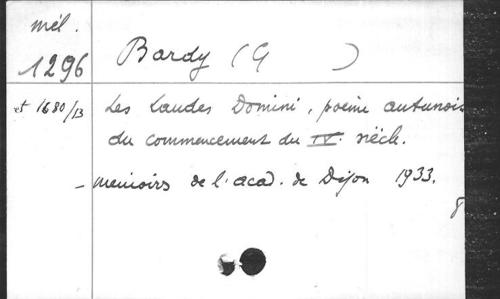 mél.
1296
Bardy (G )
et 1680/13
Les Laudes Domini, poème autunois
du commencement du IVe siècle.
– memoirs de l'acad. de Dijon 1933.
8